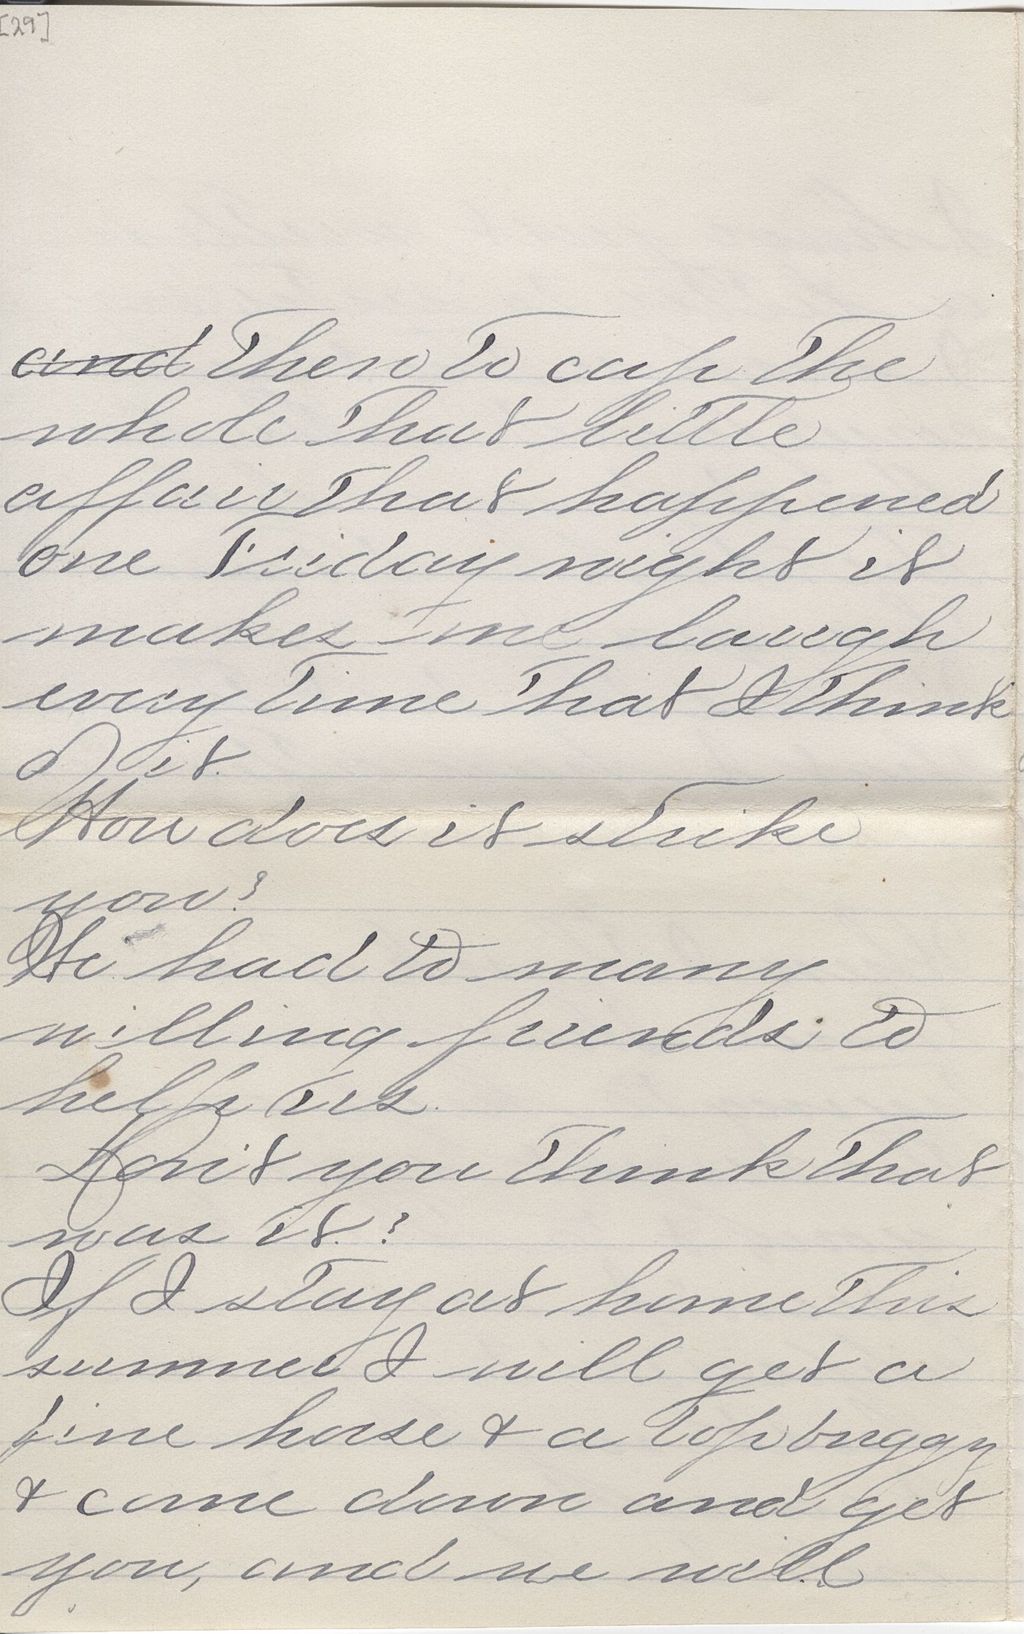 [29]
and then to cap the
whole that little
affair that happened
one Friday night it
makes me laugh
every time that I think
of it.
How does it strike
you?
He had to many
willing friends to
help us.
Don't you think that
was it?
If I stay at home this
summer I will get a
fine horse & a top buggy
& come down and get
you, and we will